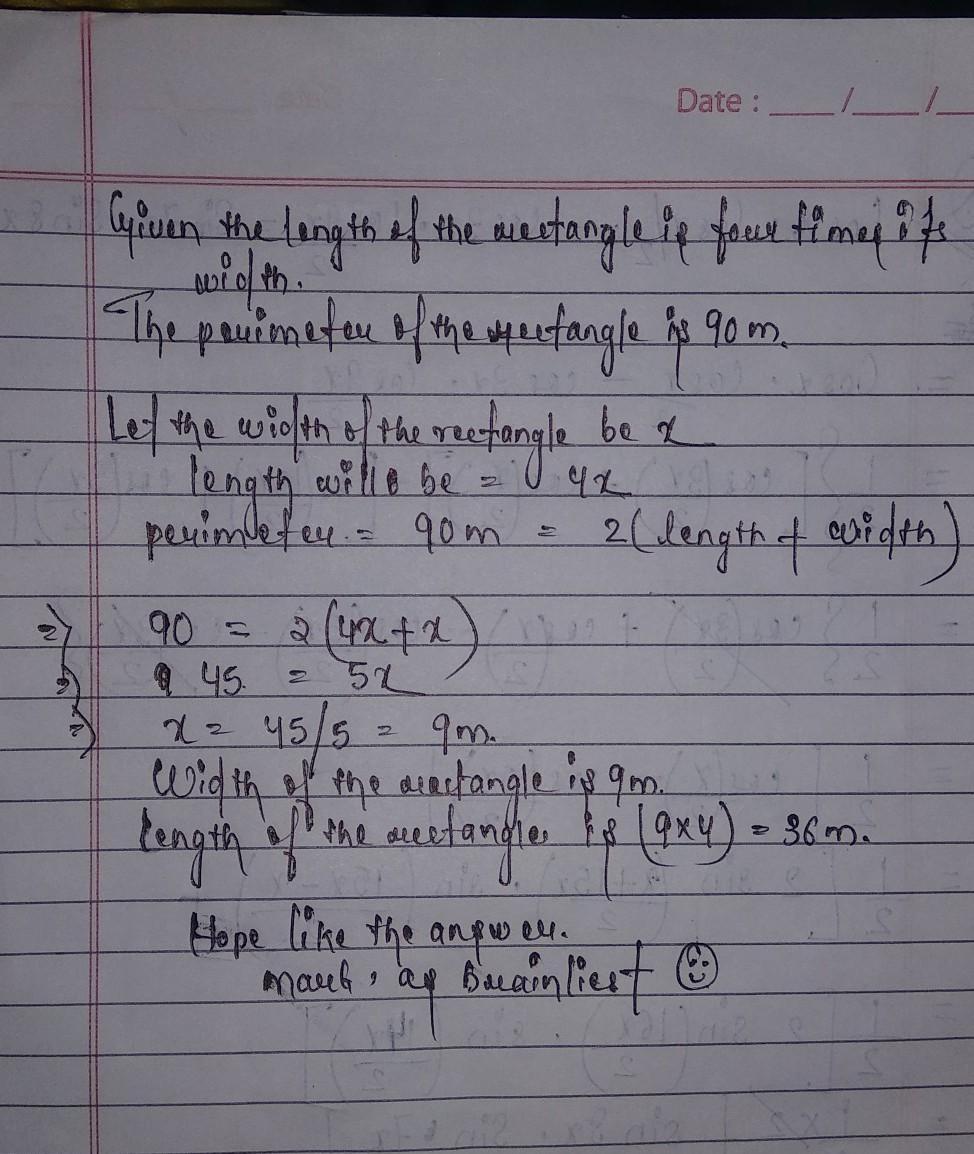 Date : ___/___/_
Given the length of the rectangle is four times its
width.
The perimeter of the rectangle is 90 m.
Let the width of the rectangle be x
length will be = 4x
perimeter = 90 m = 2(length + width)
=> 90 = 2(4x+x)
=> 45 = 5x
=> x = 45/5 = 9m.
Width of the rectangle is 9m.
Length of the rectangle is (9×4) = 36 m.
Hope like the answer.
mark, as Brainliest